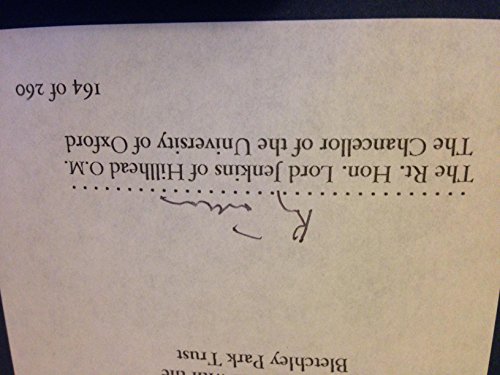 with the
Bletchley Park Trust
The Rt. Hon. Lord Jenkins of Hillhead O.M.
The Chancellor of the University of Oxford
164 of 260